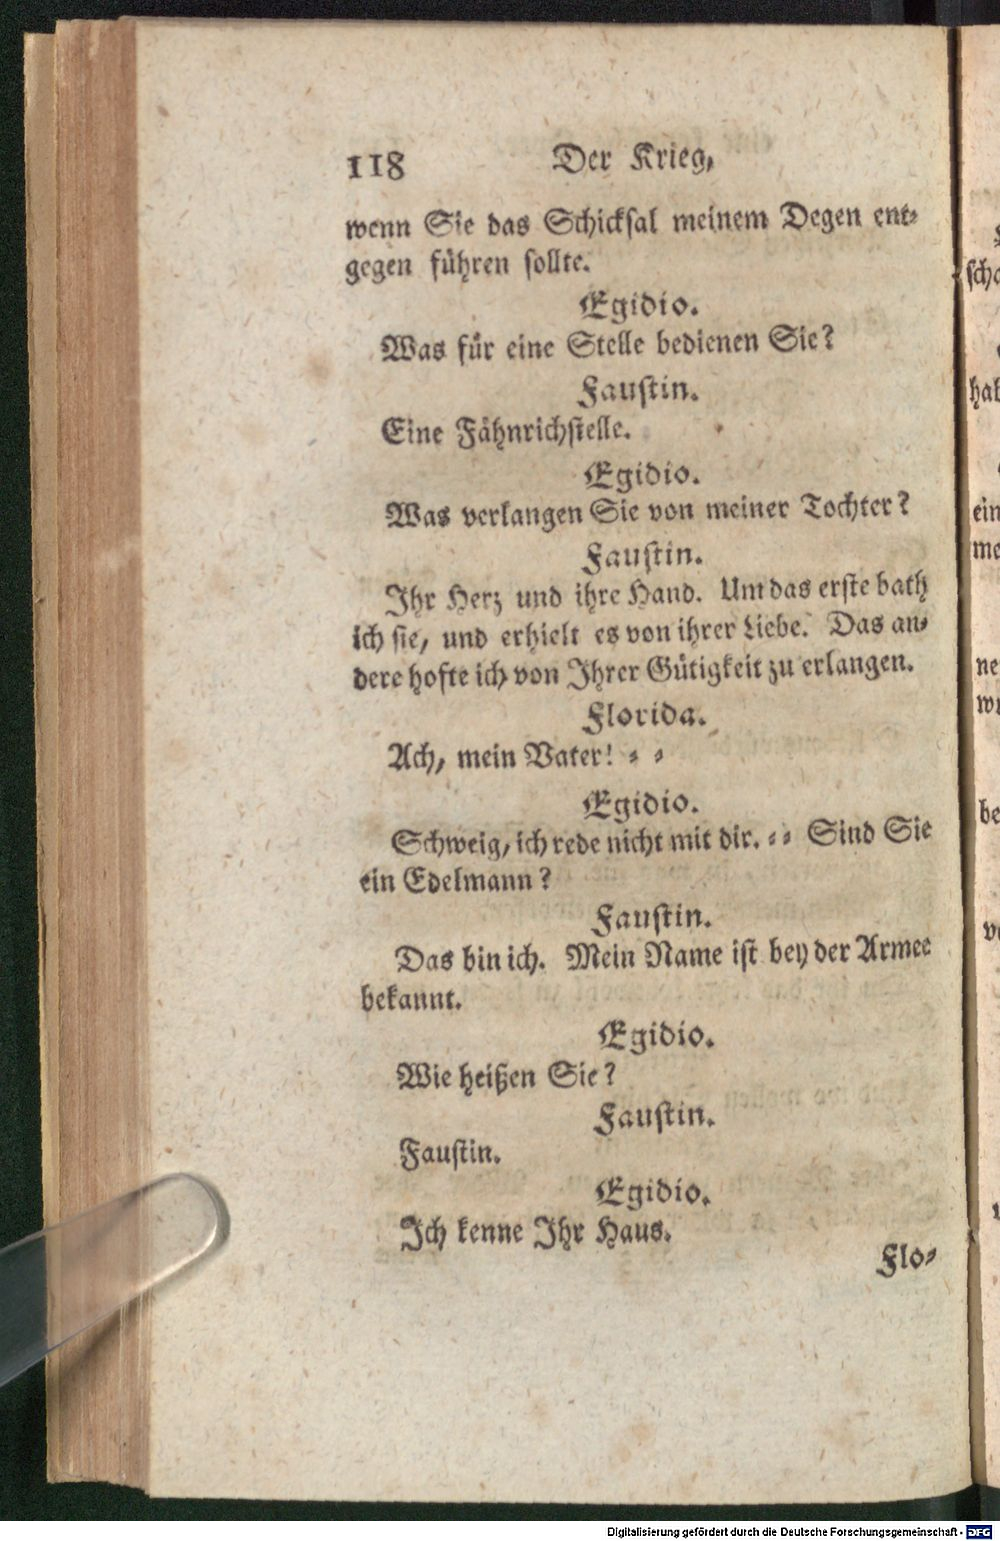 118 Der Krieg,
wenn Sie das Schicksal meinem Degen ent-
gegen führen sollte.
Egidio.
Was für eine Stelle bedienen Sie?
Faustin.
Eine Fähnrichstelle.
Egidio.
Was verlangen Sie von meiner Tochter?
Faustin.
Ihr Herz und ihre Hand. Um das erste bath
ich sie, und erhielt es von ihrer Liebe. Das an-
dere hofte ich von Ihrer Gütigkeit zu erlangen.
Florida.
Ach, mein Vater! - -
Egidio.
Schweig, ich rede nicht mit dir. - - Sind Sie
ein Edelmann?
Faustin.
Das bin ich. Mein Name ist bey der Armee
bekannt.
Egidio.
Wie heißen Sie?
Faustin.
Faustin.
Egidio.
Ich kenne Ihr Haus.
Flo-
Digitalisierung gefördert durch die Deutsche Forschungsgemeinschaft - DFG